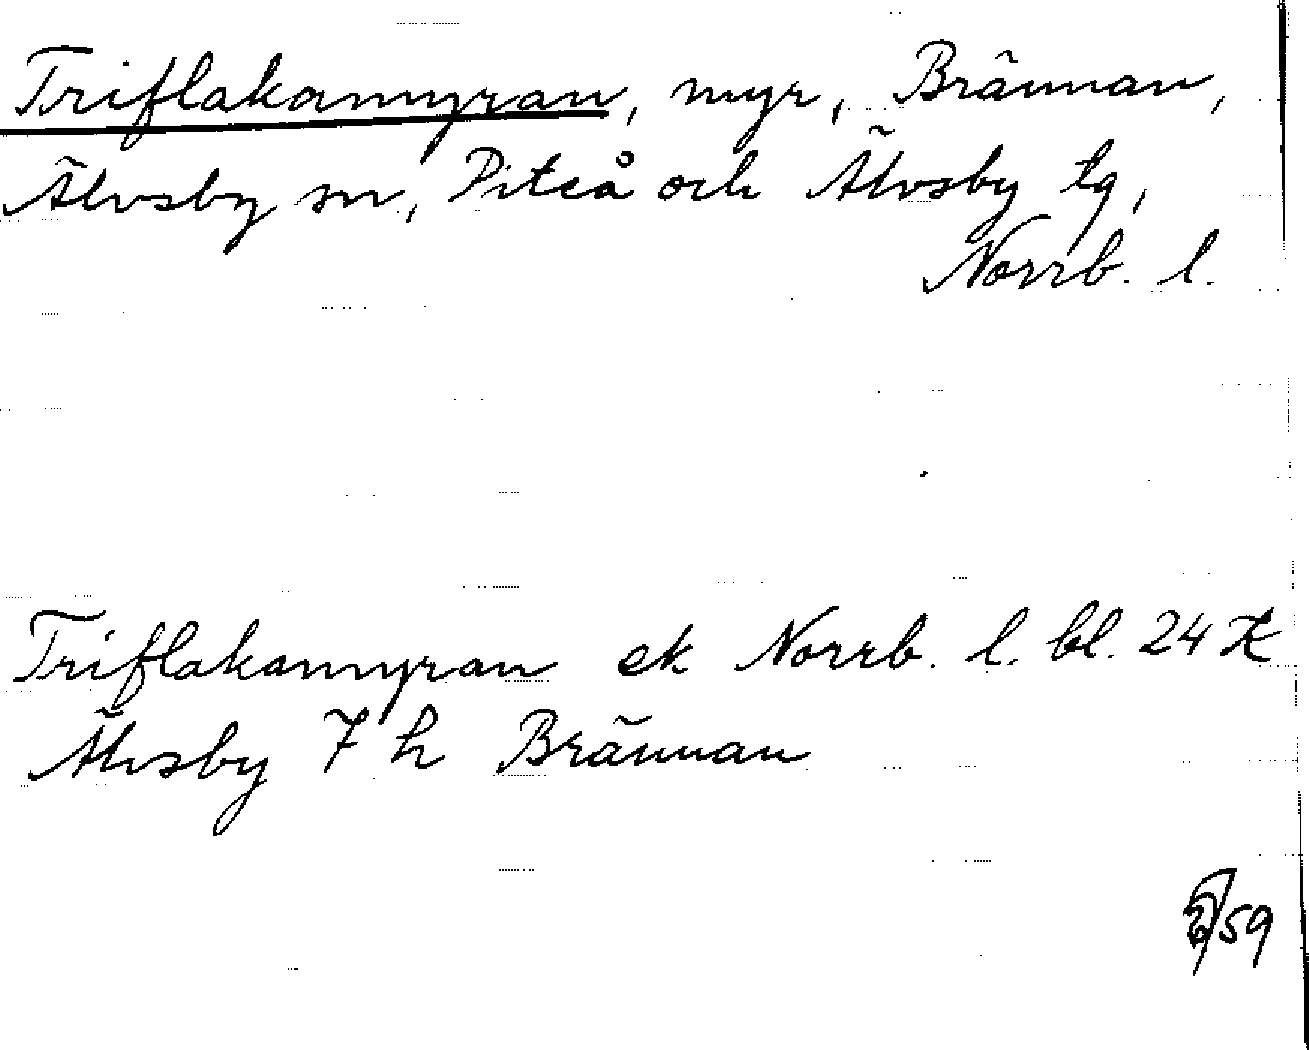 Triflakamyran, myr, Brännan,
Älvsby sn, Piteå och Älvsby tg,
Norrb. l.
Triflakamyran ek Norrb. l. bl. 24 K
Älvsby 7 h Brännan
59